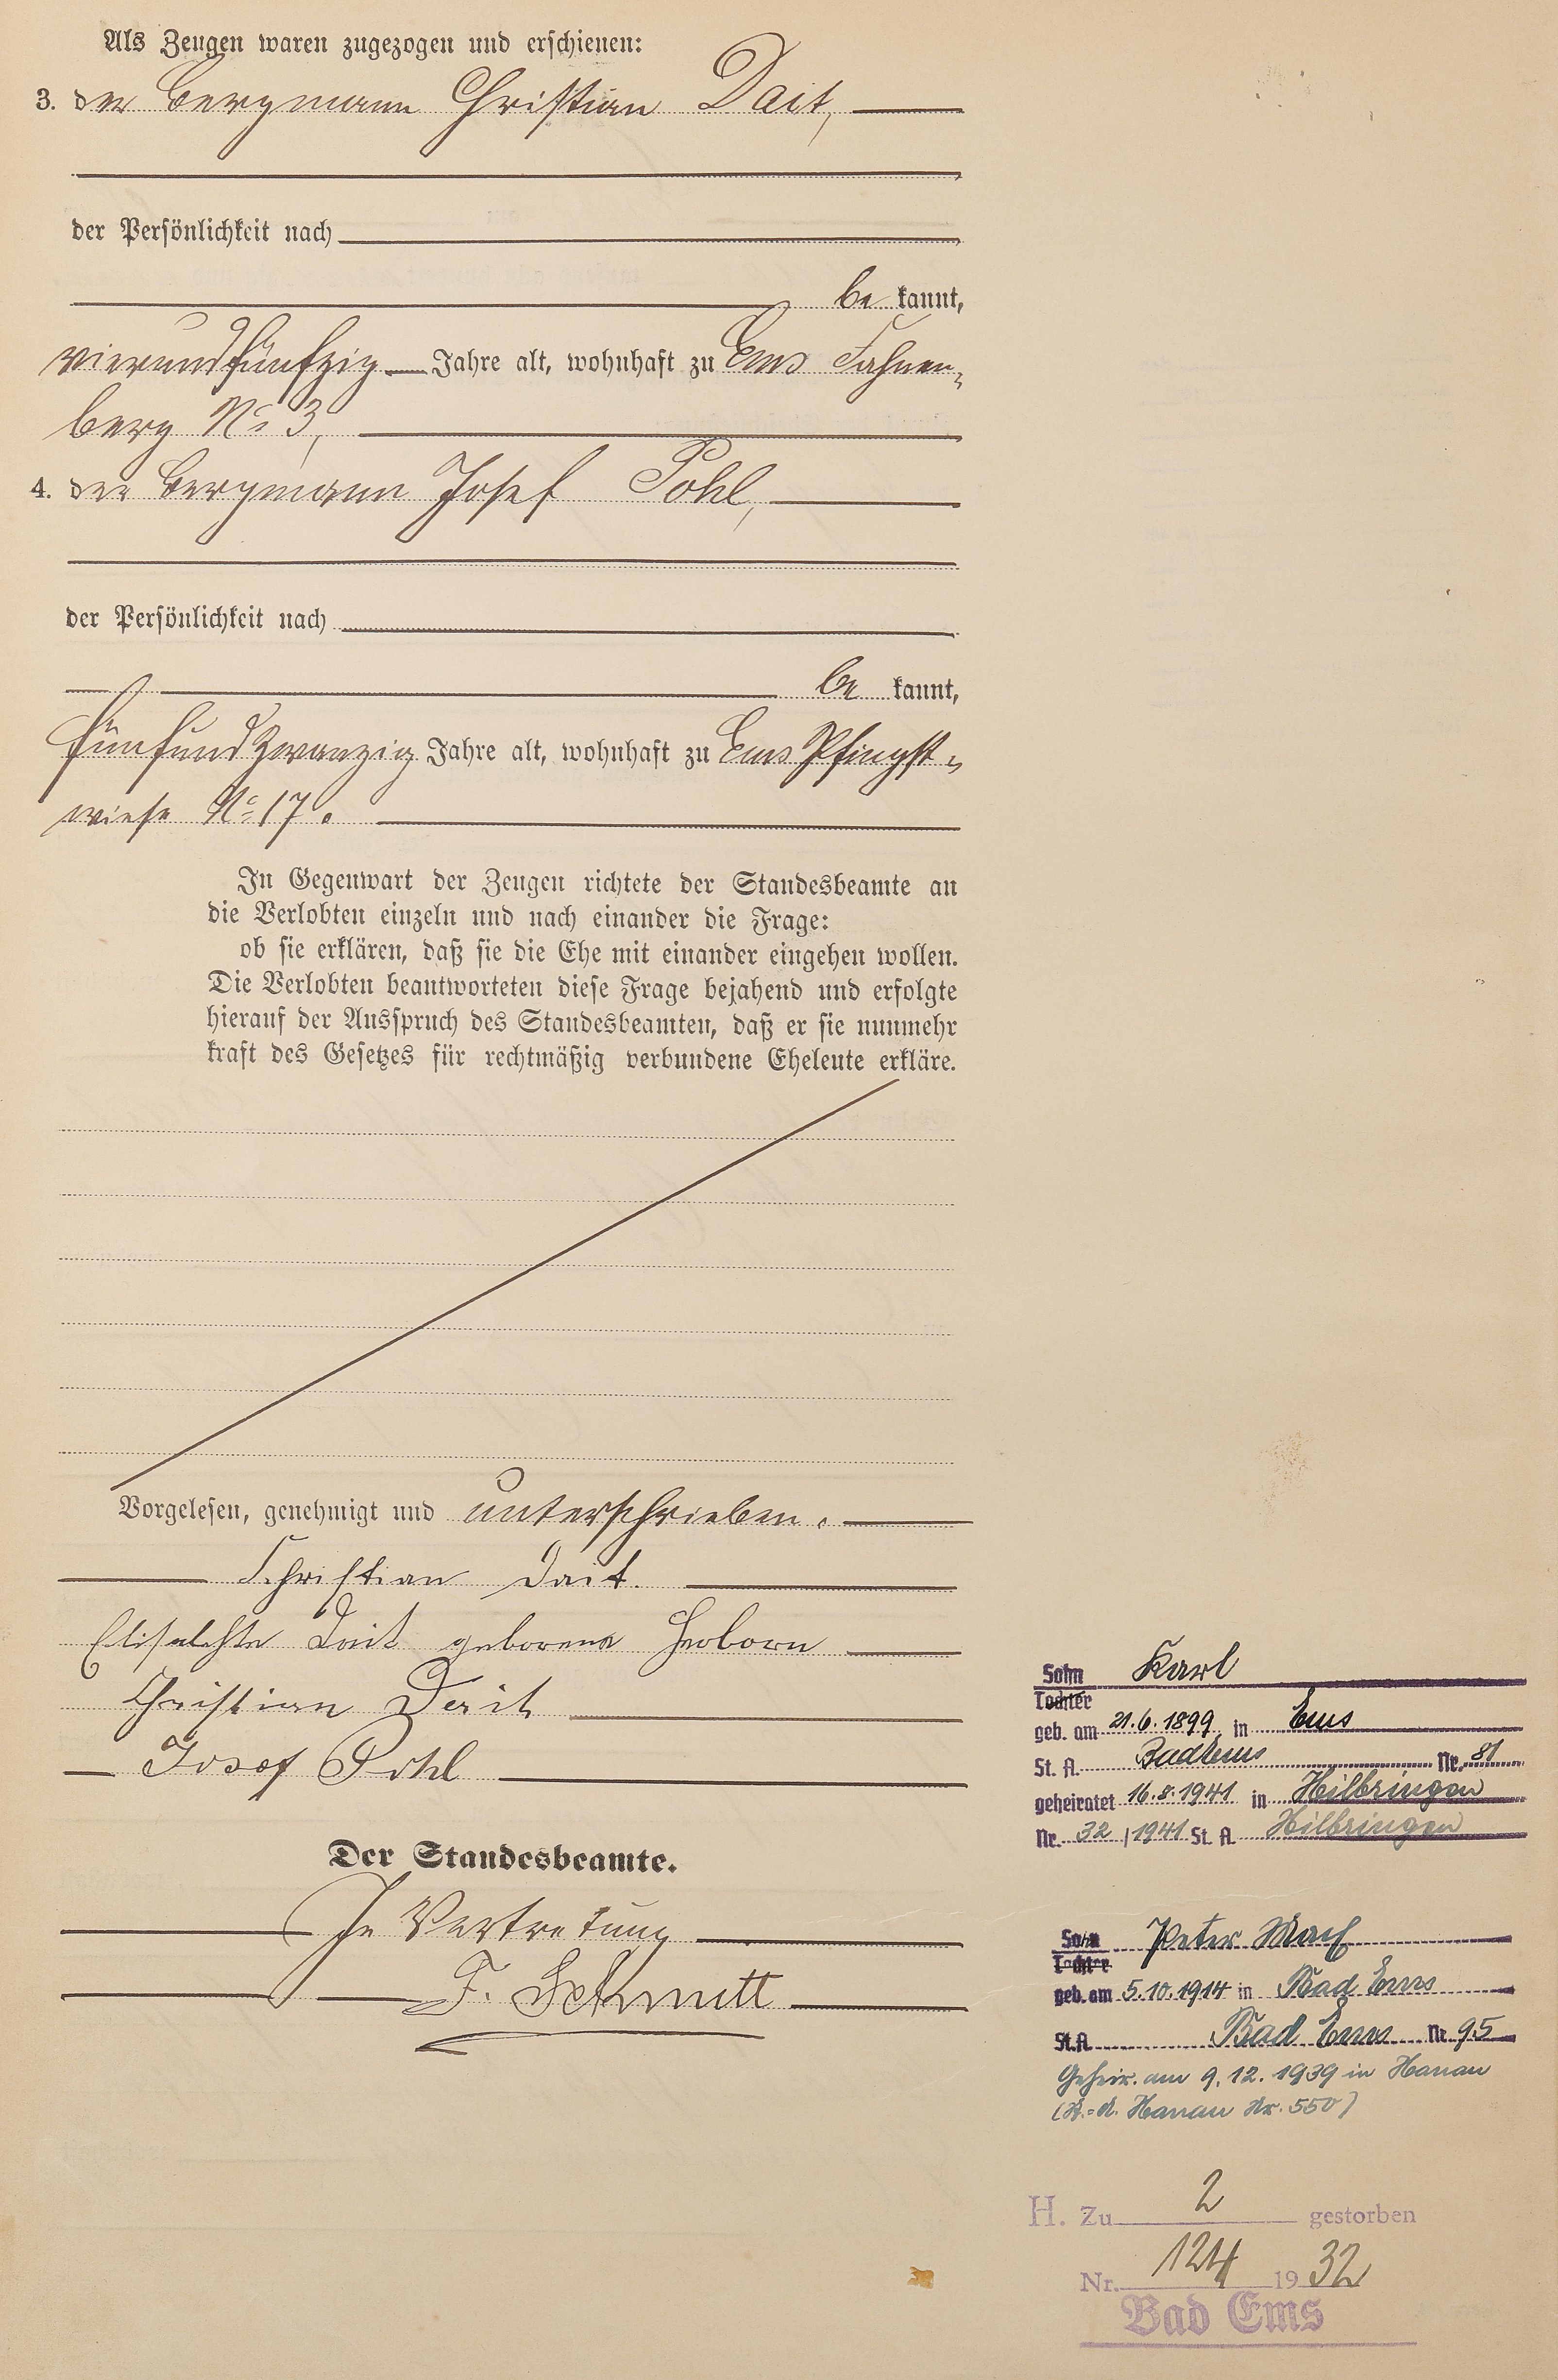 Als Zeugen waren zugezogen und erschienen:
3. der Bergmann Christian Dait,
der Persönlichkeit nach
be kannt,
vierundfünfzig Jahre alt, wohnhaft zu Ems Fahnen-
berg No 3,
4. der Bergmann Josef Pohl,
der Persönlichkeit nach
be kannt,
fünfundzwanzig Jahre alt, wohnhaft zu Ems Pfingst-
wiese No 17.
In Gegenwart der Zeugen richtete der Standesbeamte an
die Verlobten einzeln und nach einander die Frage:
ob sie erklären, daß sie die Ehe mit einander eingehen wollen.
Die Verlobten beantworteten diese Frage bejahend und erfolgte
hierauf der Ausspruch des Standesbeamten, daß er sie nunmehr
kraft des Gesetzes für rechtmäßig verbundene Eheleute erkläre.
Vorgelesen, genehmigt und unterschrieben.
Christian Dait.
Elisabethe Dait geborene Herborn
Christian Dait
Josef Pohl
Der Standesbeamte.
In Vertretung
F. Schmitt
Sohn Karl
Tochter
geb. am 21.6.1899 in Ems
St. A. Bad Ems Nr. 81
geheiratet 16.8.1941 in Hilbringen
Nr. 32 / 1941 St. A. Hilbringen
Sohn Peter
Tochter
geb. am 5.10.1914 in Bad Ems
St.A. Bad Ems Nr 95
Geheir. am 9.12.1939 in Hanau
(St.-A. Hanau Nr. 550)
H. Zu 2 gestorben
Nr. 124 1932
Bad Ems